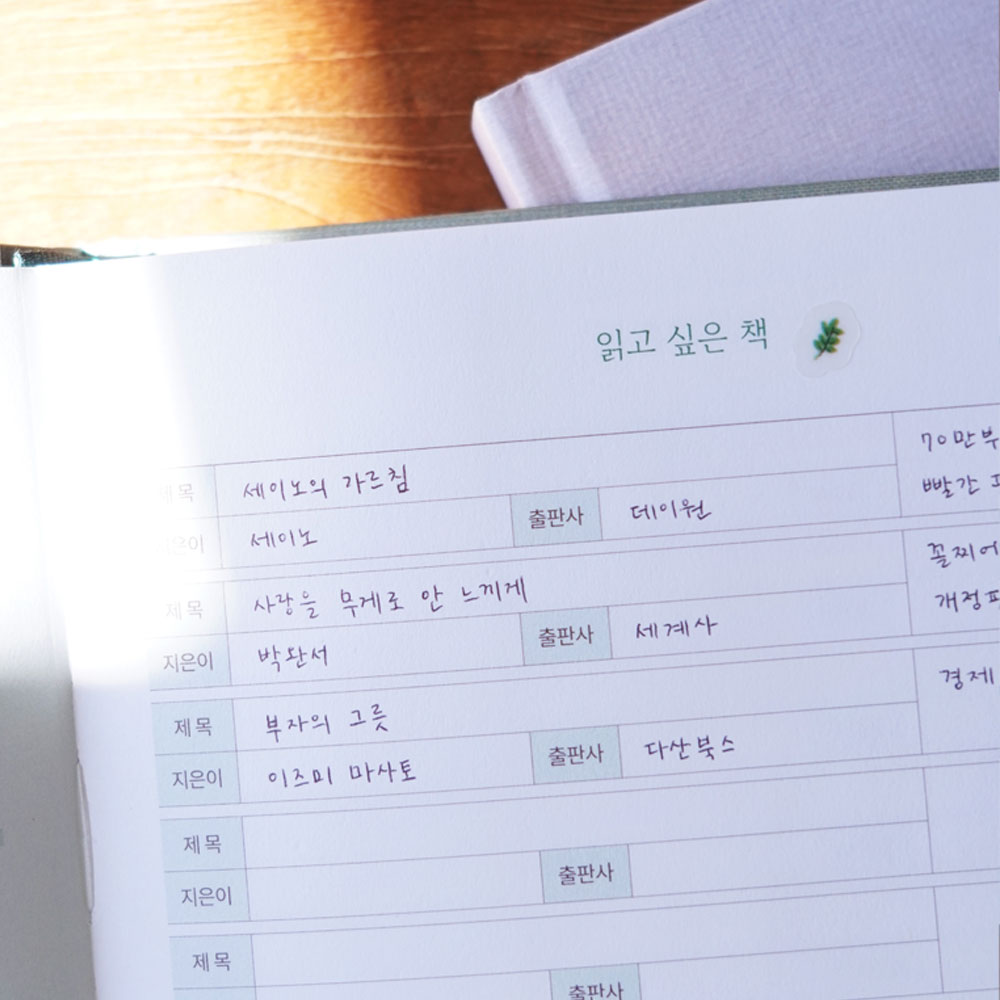 읽고 싶은 책
제목 세이노의 가르침
지은이 세이노 출판사 데이원
70만부
빨간
제목 사랑을 무게로 안 느끼게
지은이 박완서 출판사 세계사
꼴찌에
개정
제목 부자의 그릇
지은이 이즈미 마사토 출판사 다산북스
경제
제목
지은이 출판사
제목
출판사